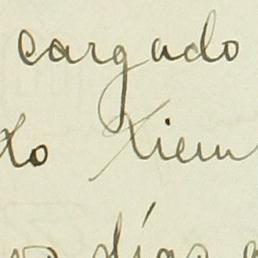 cargado
to tiem
días